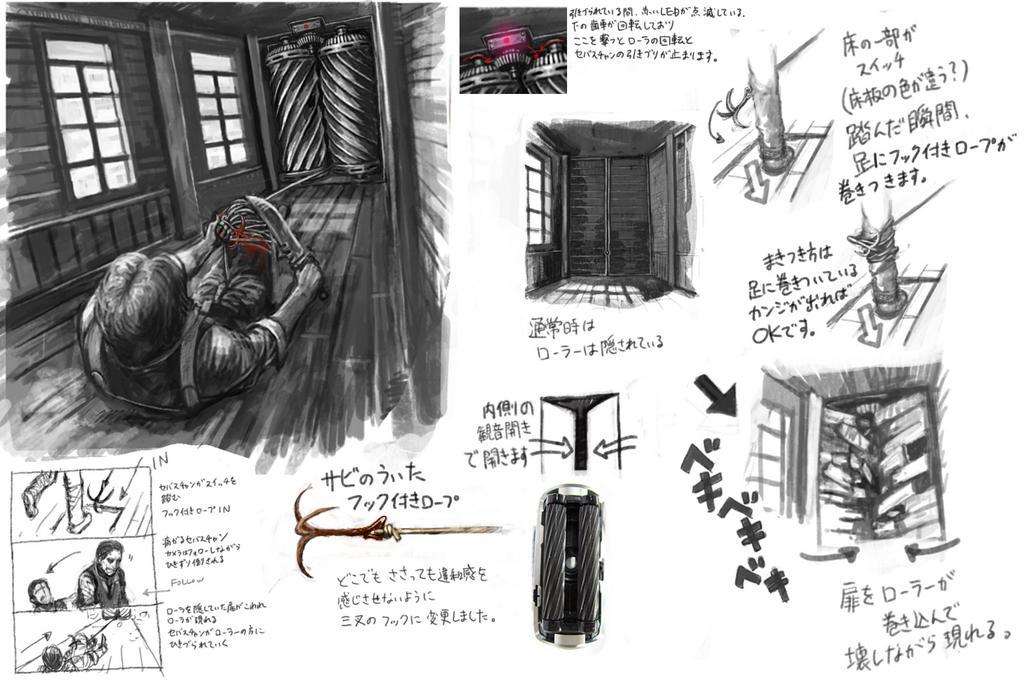 引きづられている間、赤いLEDが点滅している。
下の歯車が回転しており
ここを撃つとローラの回転と
セバスチャンの引きづりが止まります。
床の一部が
スイッチ
(床板の色が違う?)
踏んだ瞬間、
足にフック付きロープが
巻きつきます。
まきつき方は
足に巻きついている
カンジが出れば
OKです。
通常時は
ローラーは隠されている
内側の
観音開き
で開きます
ベキベキベキ
扉をローラーが
巻き込んで
壊しながら現れる。
サビのういた
フック付きロープ
どこでもささっても違和感を
感じさせないように
三叉のフックに変更しました。
IN
セバスチャンがスイッチを
踏む
フック付きロープIN
セバスチャン
カメラはフォローしながら
ひきずり倒される
FOLLOW
ローラを隠していた扉がこわれ
ローラが現れる
セバスチャンがローラーの方に
ひきづられていく